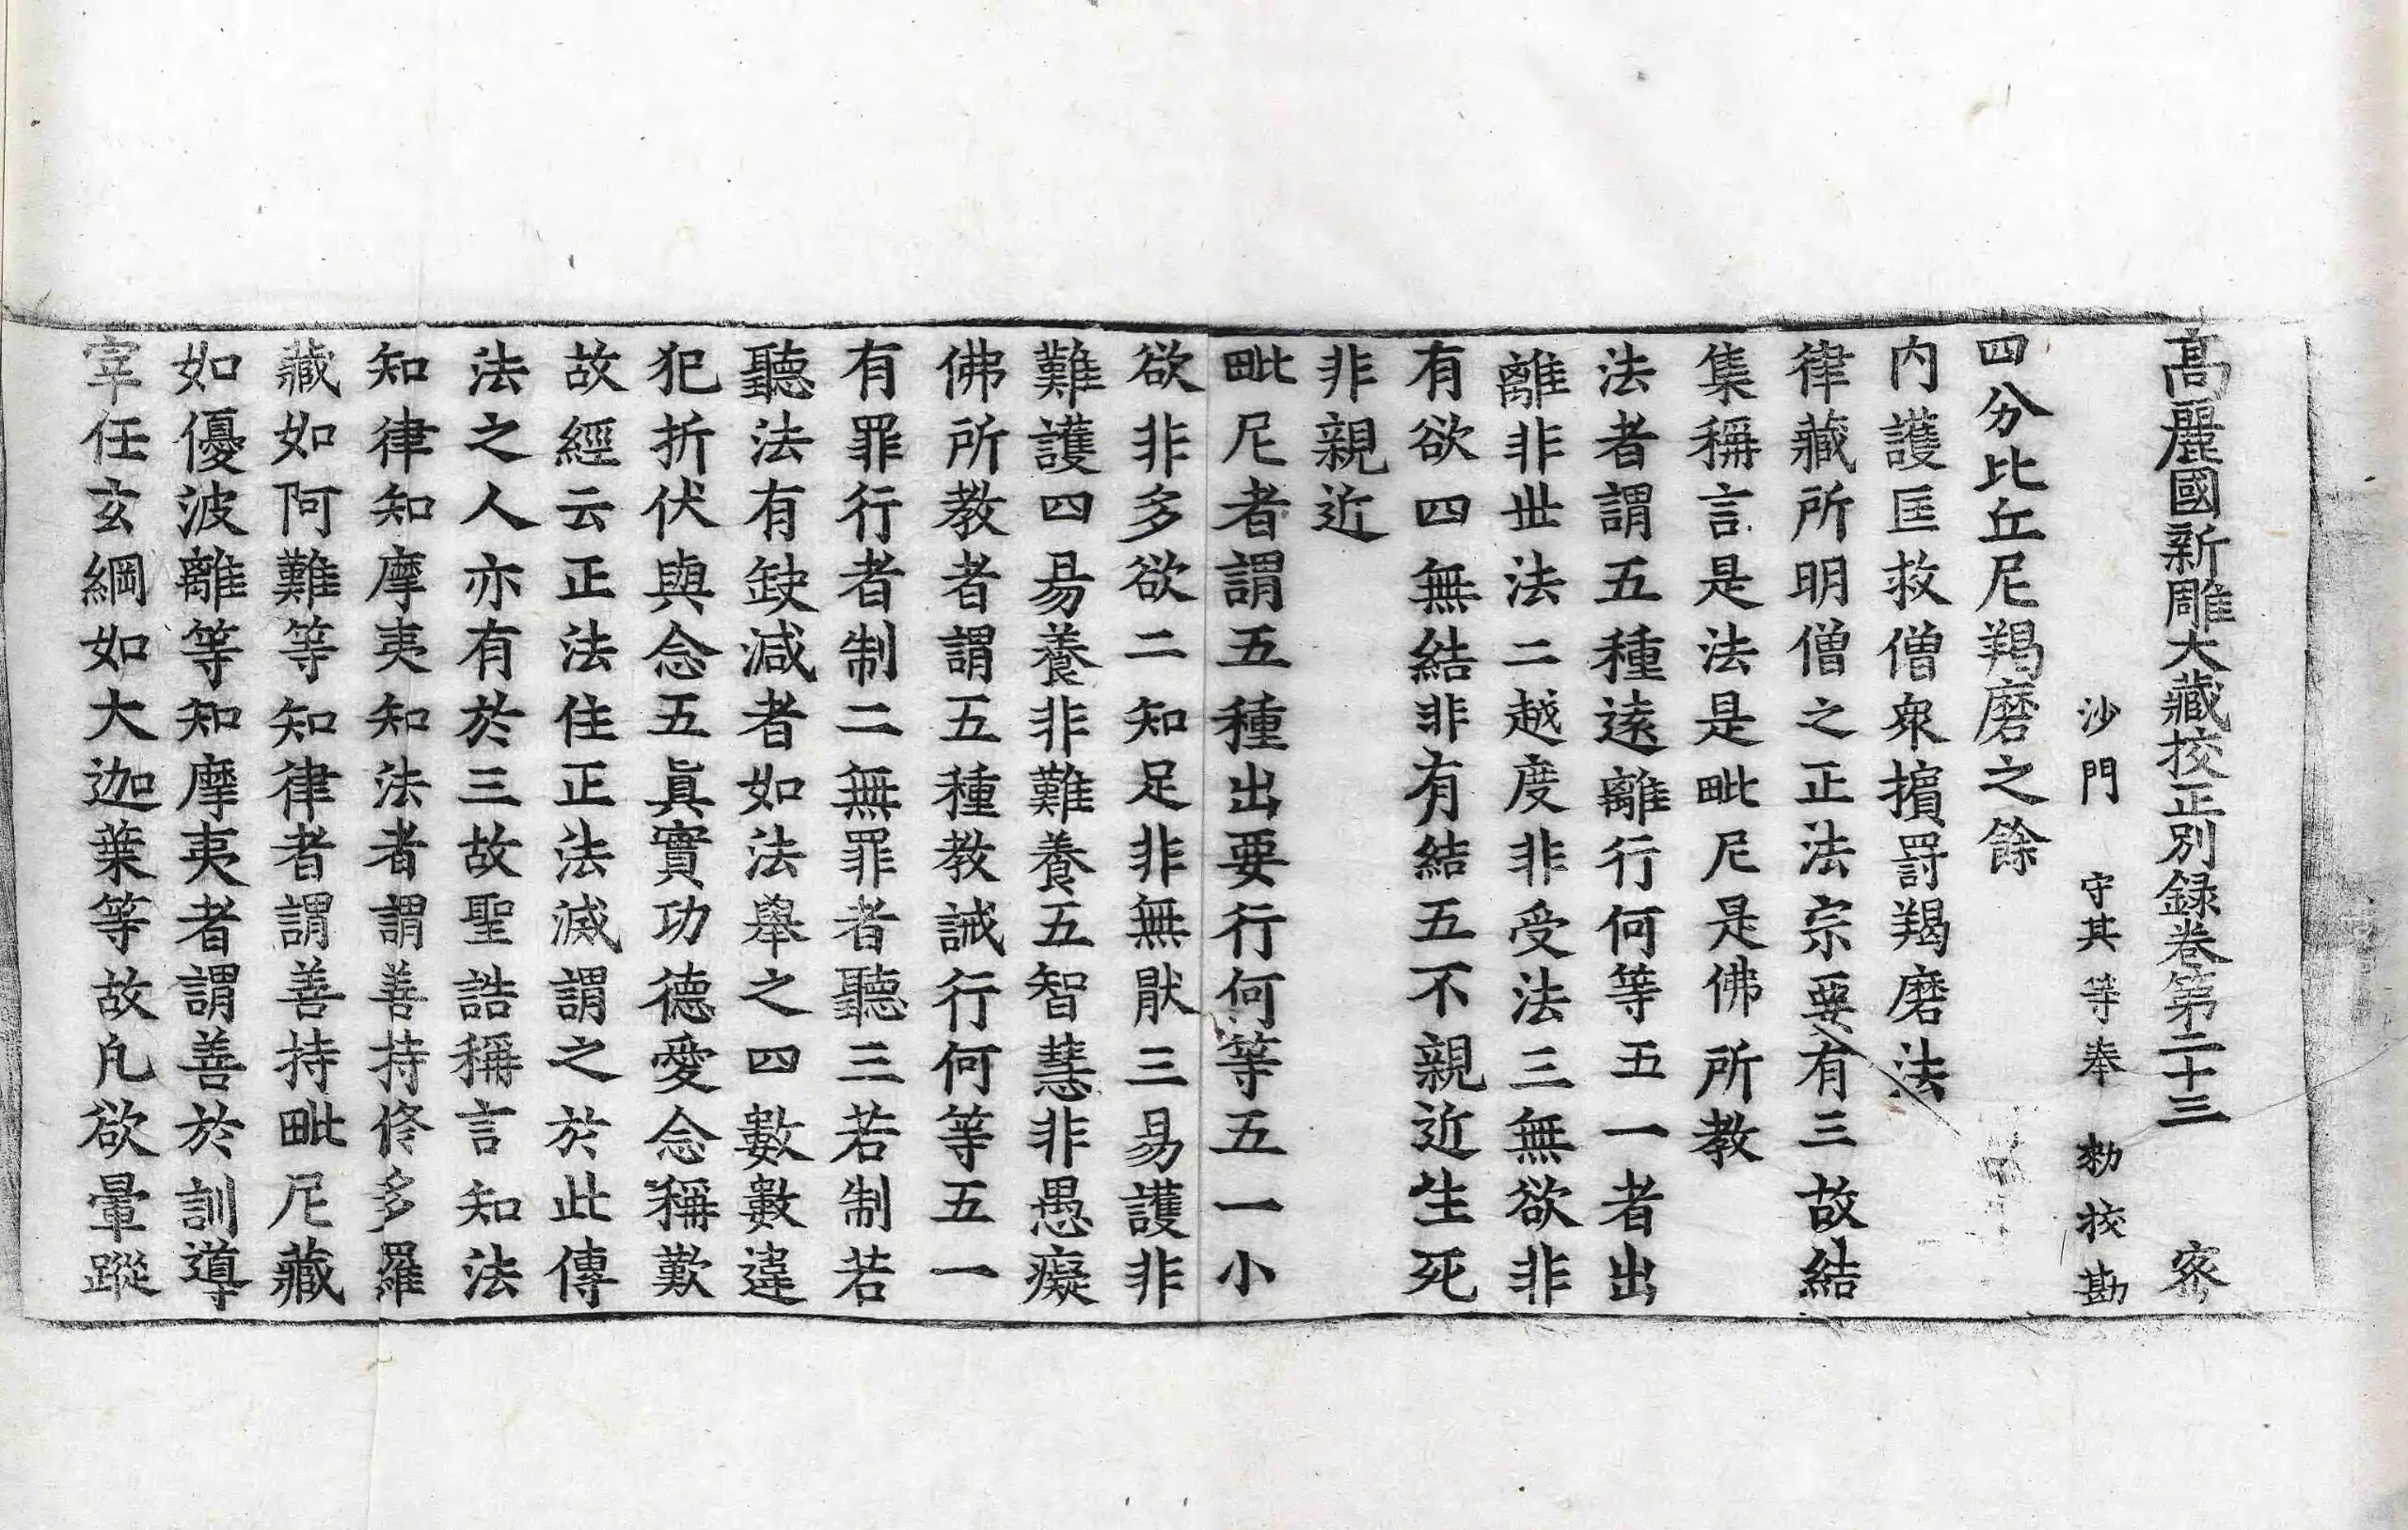 高麗國新雕大藏校正別録卷第二十三 宻
沙門 守其等奉 勑挍勘
四分比丘尼羯磨之餘
内護匡救僧衆擯罸羯磨法
律藏所明僧之正法宗要有三故結
集稱言是法是毗尼是佛所教
法者謂五種遠離行何等五一者出
離非世法二越度非受法三無欲非
有欲四無結非有結五不親近生死
非親近
毗尼者謂五種出要行何等五一小
欲非多欲二知足非無猒三易護非
難護四易養非難養五智慧非愚癡
佛所教者謂五種教誡行何等五一
有罪行者制二無罪者聽三若制若
聽法有缺減者如法舉之四數數違
犯折伏與念五真實功德愛念稱歎
故經云正法住正法滅謂之於此傳
法之人亦有於三故聖誥稱言知法
知律知摩夷知法者謂善持修多羅
藏如阿難等知律者謂善持毗尼藏
如優波離等知摩夷者謂善於訓導
宰任玄綱如大迦葉等故凡欲暈蹤